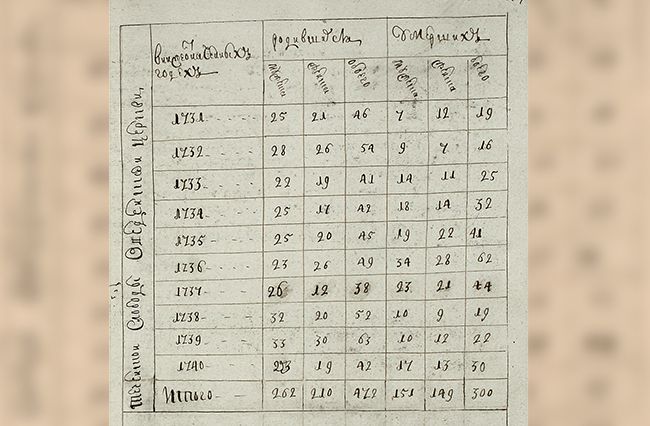 годѣхъ
обоего
обоего
1731 25 21 46 7 12 19
1732 28 26 54 9 7 16
1733 22 19 41 14 11 25
1734 25 17 42 18 14 32
1735 25 20 45 19 22 41
1736 23 26 49 34 28 62
1737 26 12 38 23 21 44
1738 32 20 52 10 9 19
1739 33 30 63 10 12 22
1740 23 19 42 17 13 30
Итого 262 210 472 151 149 300
Слободы церкви